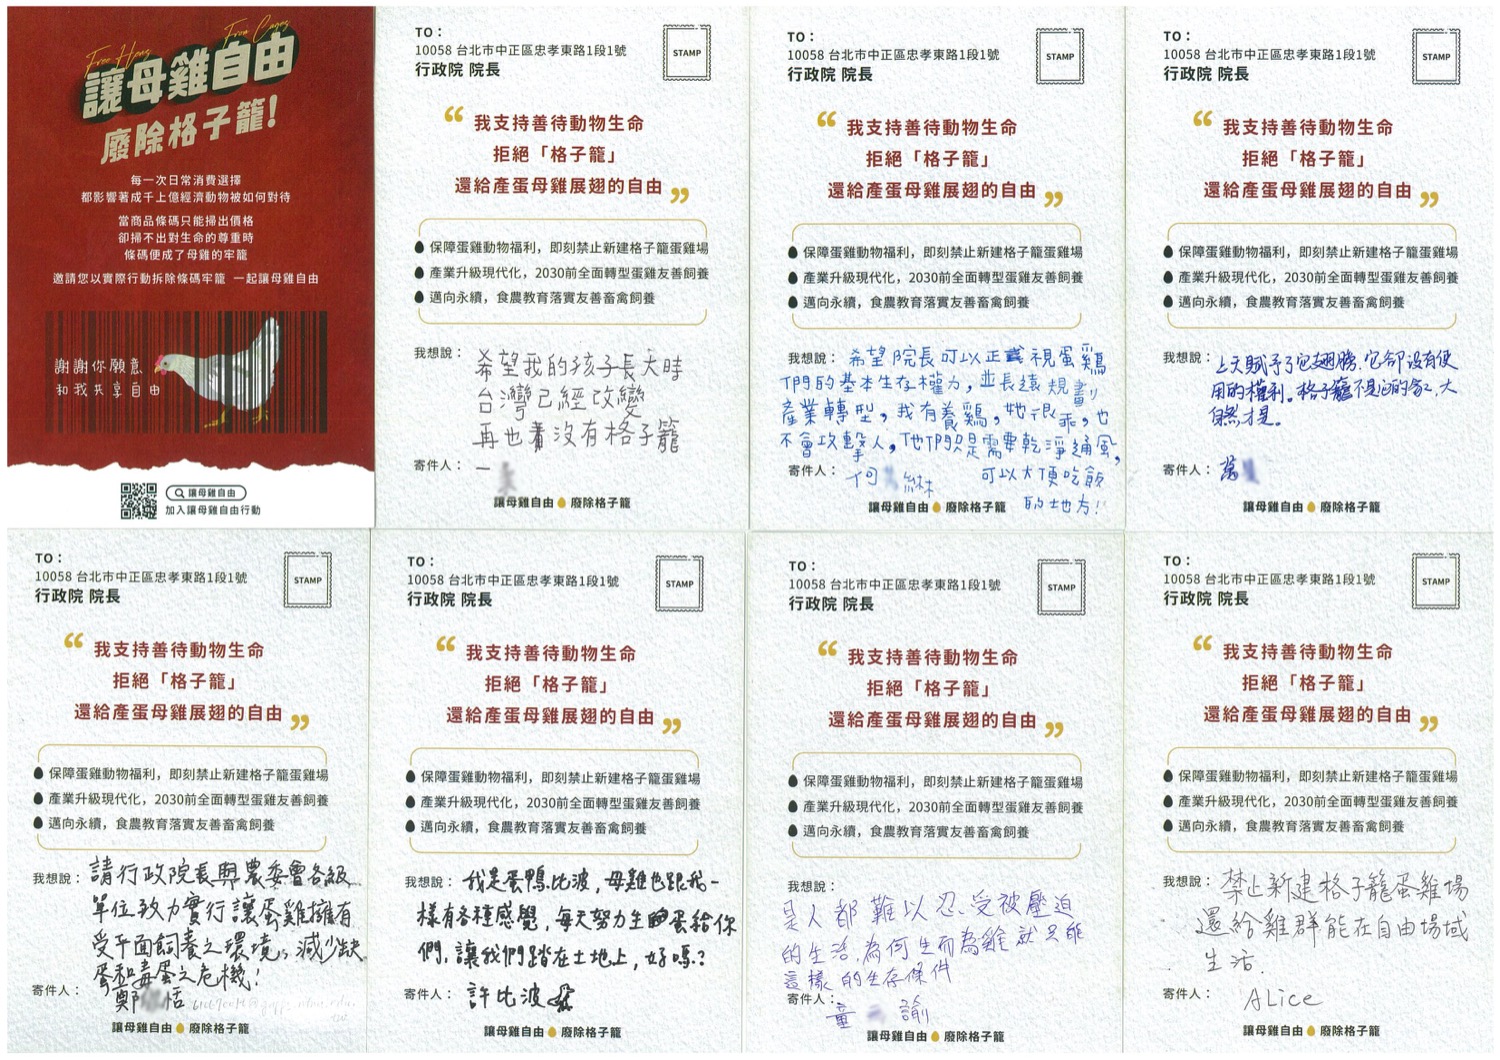 Free Hens Free Cages
讓母雞自由
廢除格子籠!
每一次日常消費選擇
都影響著成千上億經濟動物被如何對待
當商品條碼只能掃出價格
卻掃不出對生命的尊重時
條碼便成了母雞的牢籠
邀請您以實際行動拆除條碼牢籠 一起讓母雞自由
謝謝你願意
和我共享自由
讓母雞自由
加入讓母雞自由行動
TO：
10058 台北市中正區忠孝東路1段1號
行政院 院長
STAMP
“我支持善待動物生命
拒絕「格子籠」
還給產蛋母雞展翅的自由”
保障蛋雞動物福利，即刻禁止新建格子籠蛋雞場
產業升級現代化，2030前全面轉型蛋雞友善飼養
邁向永續，食農教育落實友善畜禽飼養
我想說：
希望我的孩子長大時
台灣已經改變
再也沒有格子籠
寄件人：
讓母雞自由 廢除格子籠
TO：
10058 台北市中正區忠孝東路1段1號
行政院 院長
STAMP
“我支持善待動物生命
拒絕「格子籠」
還給產蛋母雞展翅的自由”
保障蛋雞動物福利，即刻禁止新建格子籠蛋雞場
產業升級現代化，2030前全面轉型蛋雞友善飼養
邁向永續，食農教育落實友善畜禽飼養
我想說：希望院長可以正視蛋鷄
們的基本生存權力，並長遠規劃
產業轉型，我有養鷄，她很乖，也
不會攻擊人，他們只是需要乾淨通風，
可以大便吃飯
的地方!!
寄件人：何
讓母雞自由 廢除格子籠
TO：
10058 台北市中正區忠孝東路1段1號
行政院 院長
STAMP
“我支持善待動物生命
拒絕「格子籠」
還給產蛋母雞展翅的自由”
保障蛋雞動物福利，即刻禁止新建格子籠蛋雞場
產業升級現代化，2030前全面轉型蛋雞友善飼養
邁向永續，食農教育落實友善畜禽飼養
我想說：上天賦予了它翅膀.它卻沒有使
用的權利。格子籠不是它的家，大
自然才是。
寄件人：
讓母雞自由 廢除格子籠
TO：
10058 台北市中正區忠孝東路1段1號
行政院 院長
STAMP
“我支持善待動物生命
拒絕「格子籠」
還給產蛋母雞展翅的自由”
保障蛋雞動物福利，即刻禁止新建格子籠蛋雞場
產業升級現代化，2030前全面轉型蛋雞友善飼養
邁向永續，食農教育落實友善畜禽飼養
我想說：請行政院長與農委會各級
單位致力實行讓蛋雞擁有
受平面飼養之環境。減少缺
蛋和毒蛋之危機！
寄件人：鄭 恬
讓母雞自由 廢除格子籠
TO：
10058 台北市中正區忠孝東路1段1號
行政院 院長
STAMP
“我支持善待動物生命
拒絕「格子籠」
還給產蛋母雞展翅的自由”
保障蛋雞動物福利，即刻禁止新建格子籠蛋雞場
產業升級現代化，2030前全面轉型蛋雞友善飼養
邁向永續，食農教育落實友善畜禽飼養
我想說：我是蛋鴨比波，母雞也跟我一
樣有各種感覺，每天努力生蛋給你
們，讓我們踏在土地上，好嗎？
寄件人：許比波
讓母雞自由 廢除格子籠
TO：
10058 台北市中正區忠孝東路1段1號
行政院 院長
STAMP
“我支持善待動物生命
拒絕「格子籠」
還給產蛋母雞展翅的自由”
保障蛋雞動物福利，即刻禁止新建格子籠蛋雞場
產業升級現代化，2030前全面轉型蛋雞友善飼養
邁向永續，食農教育落實友善畜禽飼養
我想說：
是人都難以忍受被壓迫
的生活，為何生而為雞就只能
這樣的生存條件
寄件人：
童 諭
讓母雞自由 廢除格子籠
TO：
10058 台北市中正區忠孝東路1段1號
行政院 院長
STAMP
“我支持善待動物生命
拒絕「格子籠」
還給產蛋母雞展翅的自由”
保障蛋雞動物福利，即刻禁止新建格子籠蛋雞場
產業升級現代化，2030前全面轉型蛋雞友善飼養
邁向永續，食農教育落實友善畜禽飼養
我想說：禁止新建格子籠蛋雞場
還給雞群能在自由場域
生活.
寄件人：Alice
讓母雞自由 廢除格子籠